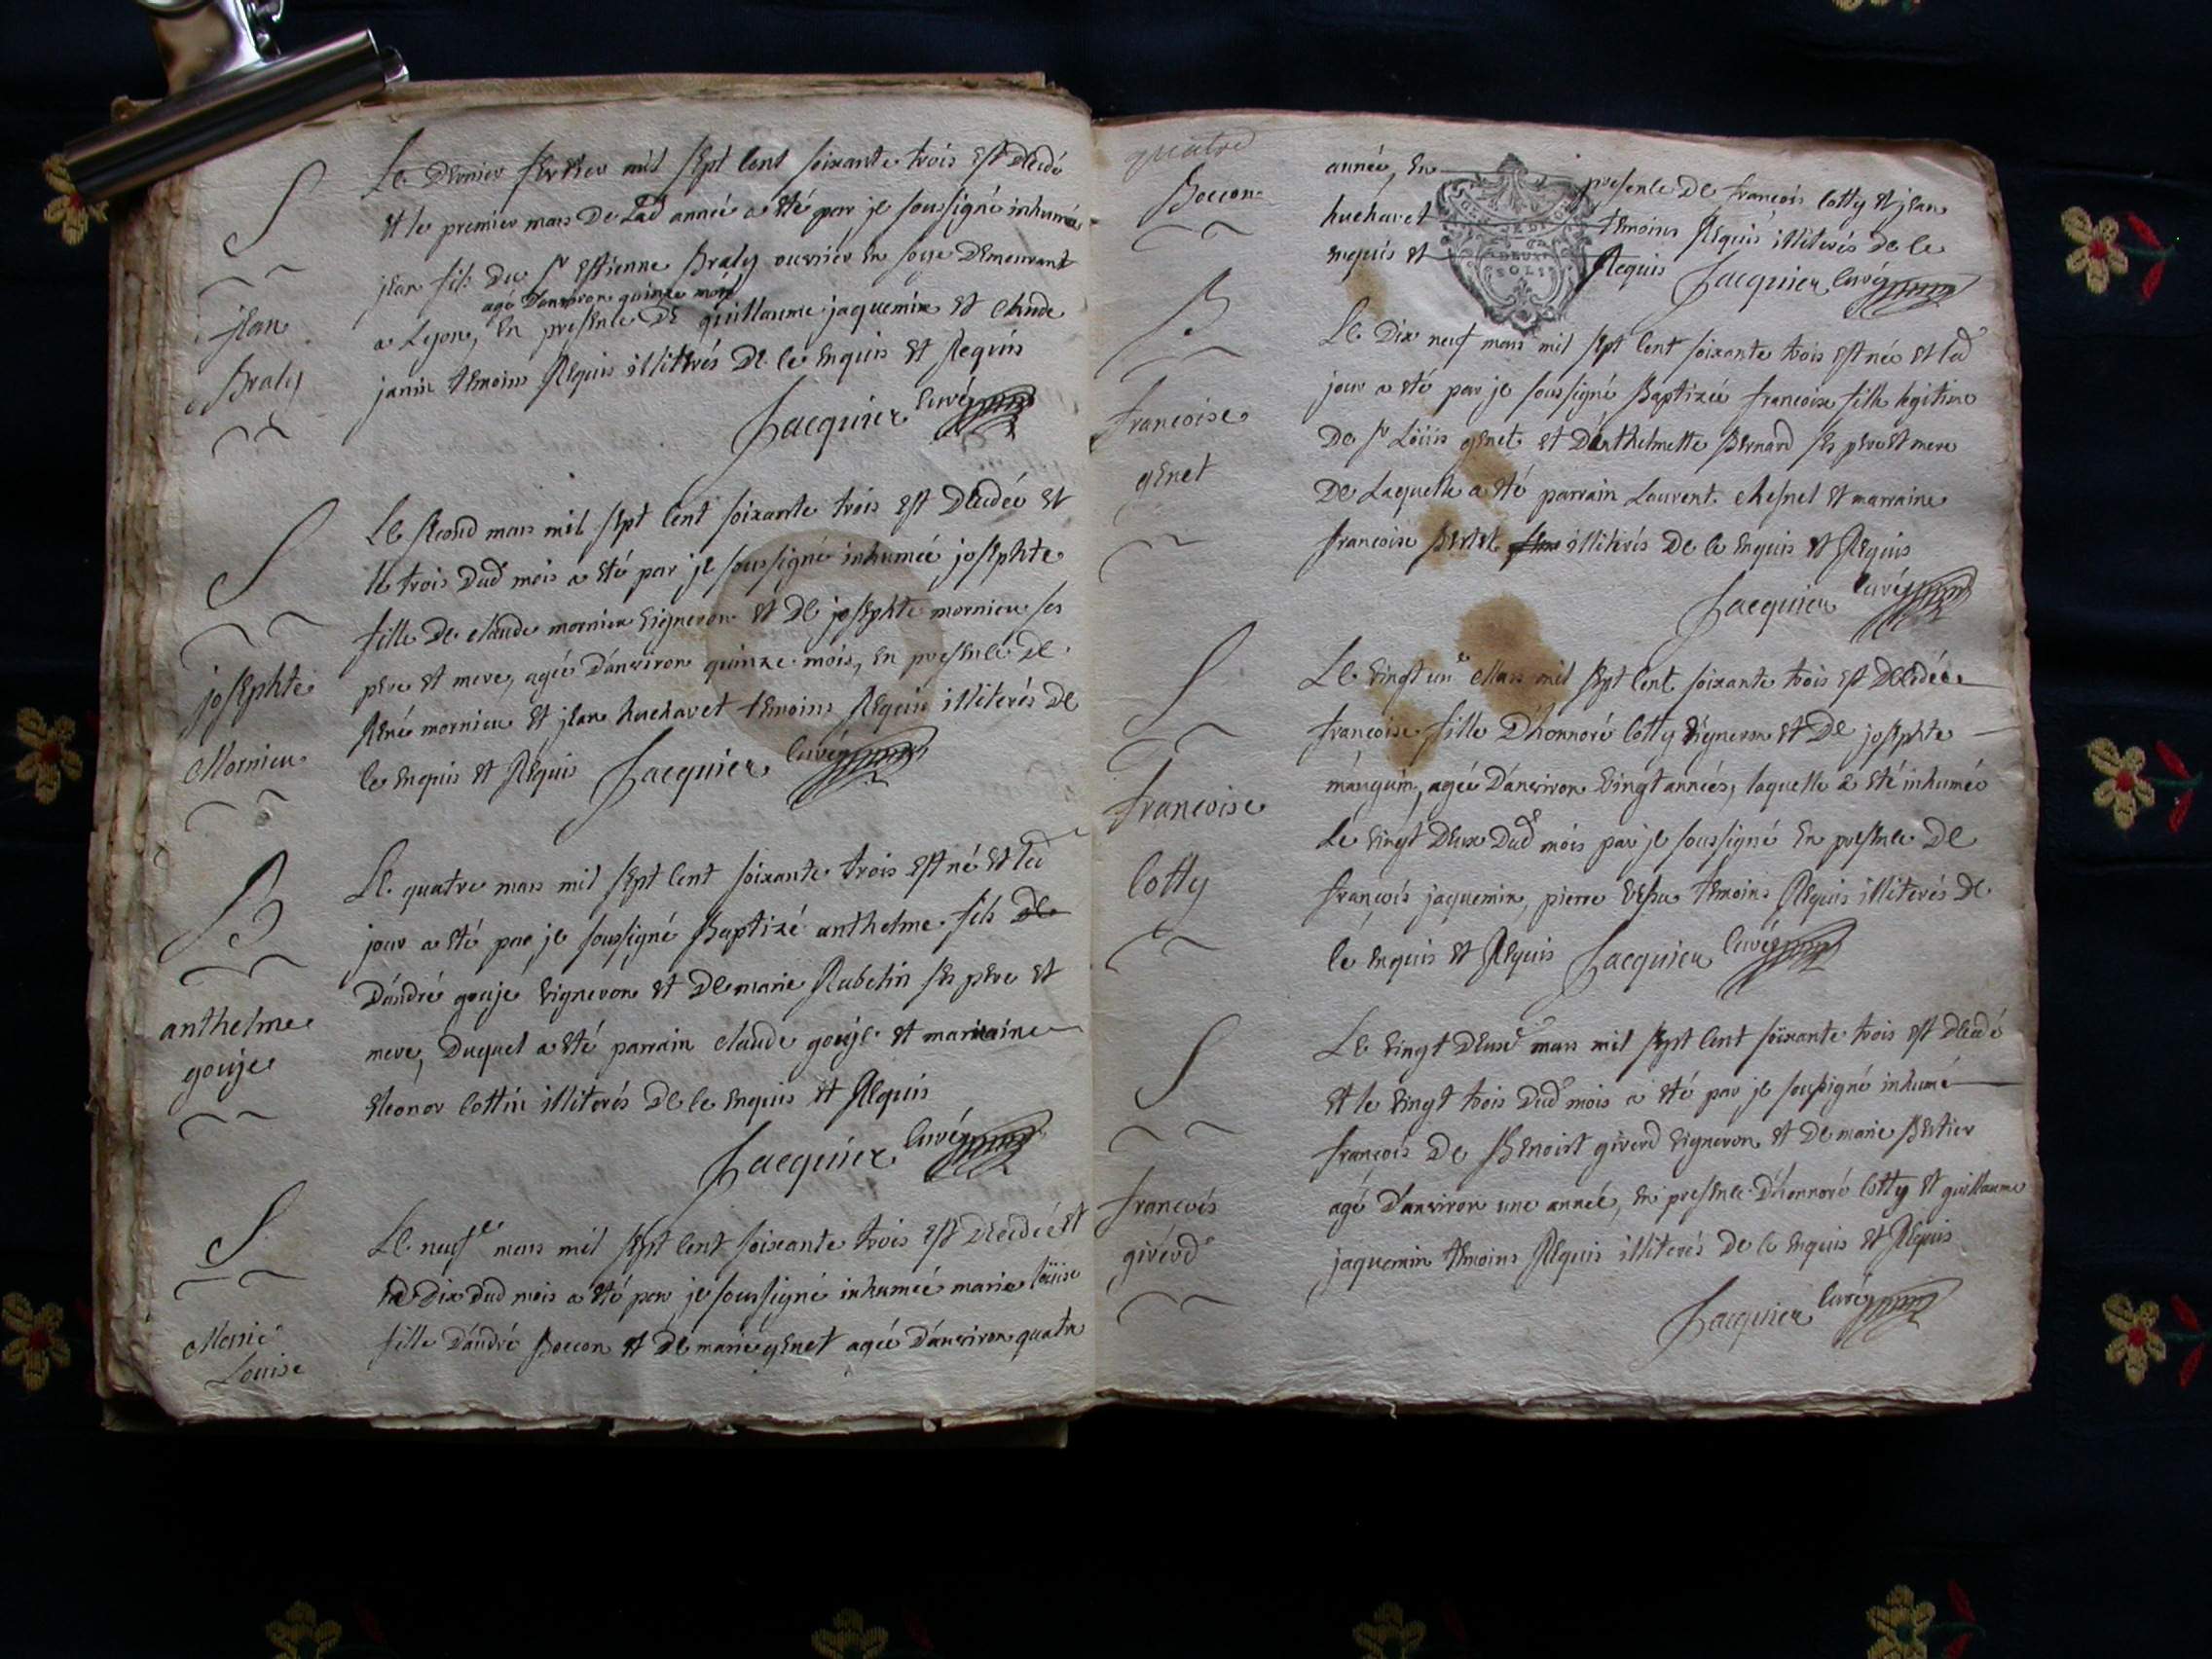 S
jean
Braly
Le dernier fevrier mil sept cent soixante trois est decedé
et le premier mars de Lad année a eté par je soussigné inhumé
jean fils du Sr estienne Braly ouvrier en soye demeurant
agé d'anviron quinze mois
a Lyon, en presence de guillaume jaquemin et claude
janin temoins Requis illiterés de ce enquis et Requis
Jacquier curé
S
josephte
Mornieu
Le second mars mil sept cent soixante trois est decedée et
le trois dud mois a eté par je soussigné inhumée josephte
fille de claude mornieu vigneron et de josephte mornieu ses
pere et mere, agée d'anviron quinze mois, en presence de
René mornieu et jean huchavet temoins Requis illiterés de
ce enquis et Requis Jacquier curé
B
anthelme
gouje
Le quatre mars mil sept cent soixante trois est né et led
jour a eté par je soussigné Baptizé anthelme fils de
d'andré gouje vigneron et de marie Rubelin ses pere et
mere, duquel a eté parrain claude gouje et marraine
eleonor cottin illiterés de ce enquis et Requis
Jacquier curé
S
Marie
Louise
Le neufe mars mil sept cent soixante trois est decedée et
le dix dud mois a eté par je soussigné inhumée marie loüise
fille d'andré Boccon et de marie genet agée d'anviron quatre
quatre
Boccon
année, en presence de francois cotty et jean
huchavet temoins Requis illiterés de ce
enquis et Requis Jacquier curé
DEUX
SOLS
B
francoise
genet
Le dix neuf mars mil sept cent soixante trois est née et led
jour a eté par je soussigné Baptizée francoise fille legitime
de Sr Loüis genet et d'anthelmette Bernard ses pere et mere
de Laquelle a eté parrain Laurent chesnel et marraine
francoise Bertet illiterés de ce enquis et Requis
Jacquier curé
S
francoise
cotty
Le vingt une Mars mil sept cent soixante trois est decedée
françoise fille d'honnoré cotty vigneron et de josephte
manguin, agée d'anviron vingt années, laquelle a eté inhumée
Le vingt deux dud mois par je soussigné en presence de
françois jaquemin, pierre temoins Requis illiterés de
ce enquis et Requis Jacquier curé
S
francois
giverd
Le vingt deuxe mars mil sept cent soixante trois est decedé
et le vingt trois dud mois a eté par je soussigné inhumé
françois de Benoist giverd vigneron et de marie Bertier
agé d'anviron une année, en presence d'honnoré cotty et guillaume
jaquemin temoins Requis illiterés de ce enquis et Requis
Jacquier curé